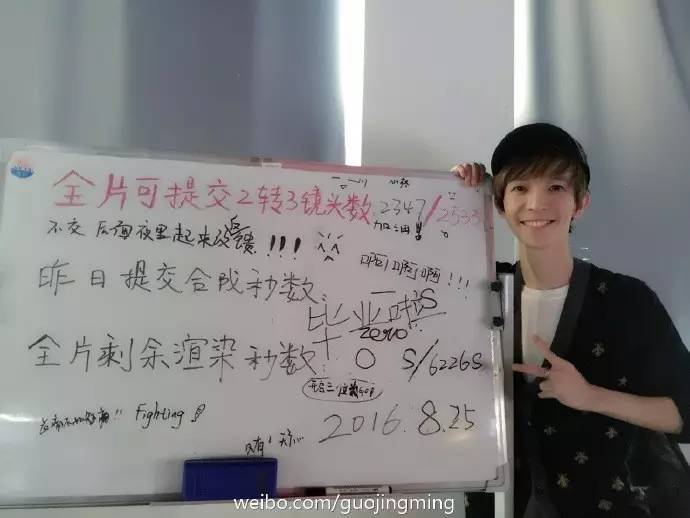 全片可提交2转3镜头数 2347/2533
加油!!
不交 后面夜里起来没反馈!!!
啊啊啊!!!
昨日提交合成秒数:
毕业啦 S
zero
全片剩余渲染秒数: 0 S/6226S
Fighting
2016.8.25
weibo.com/guojingming